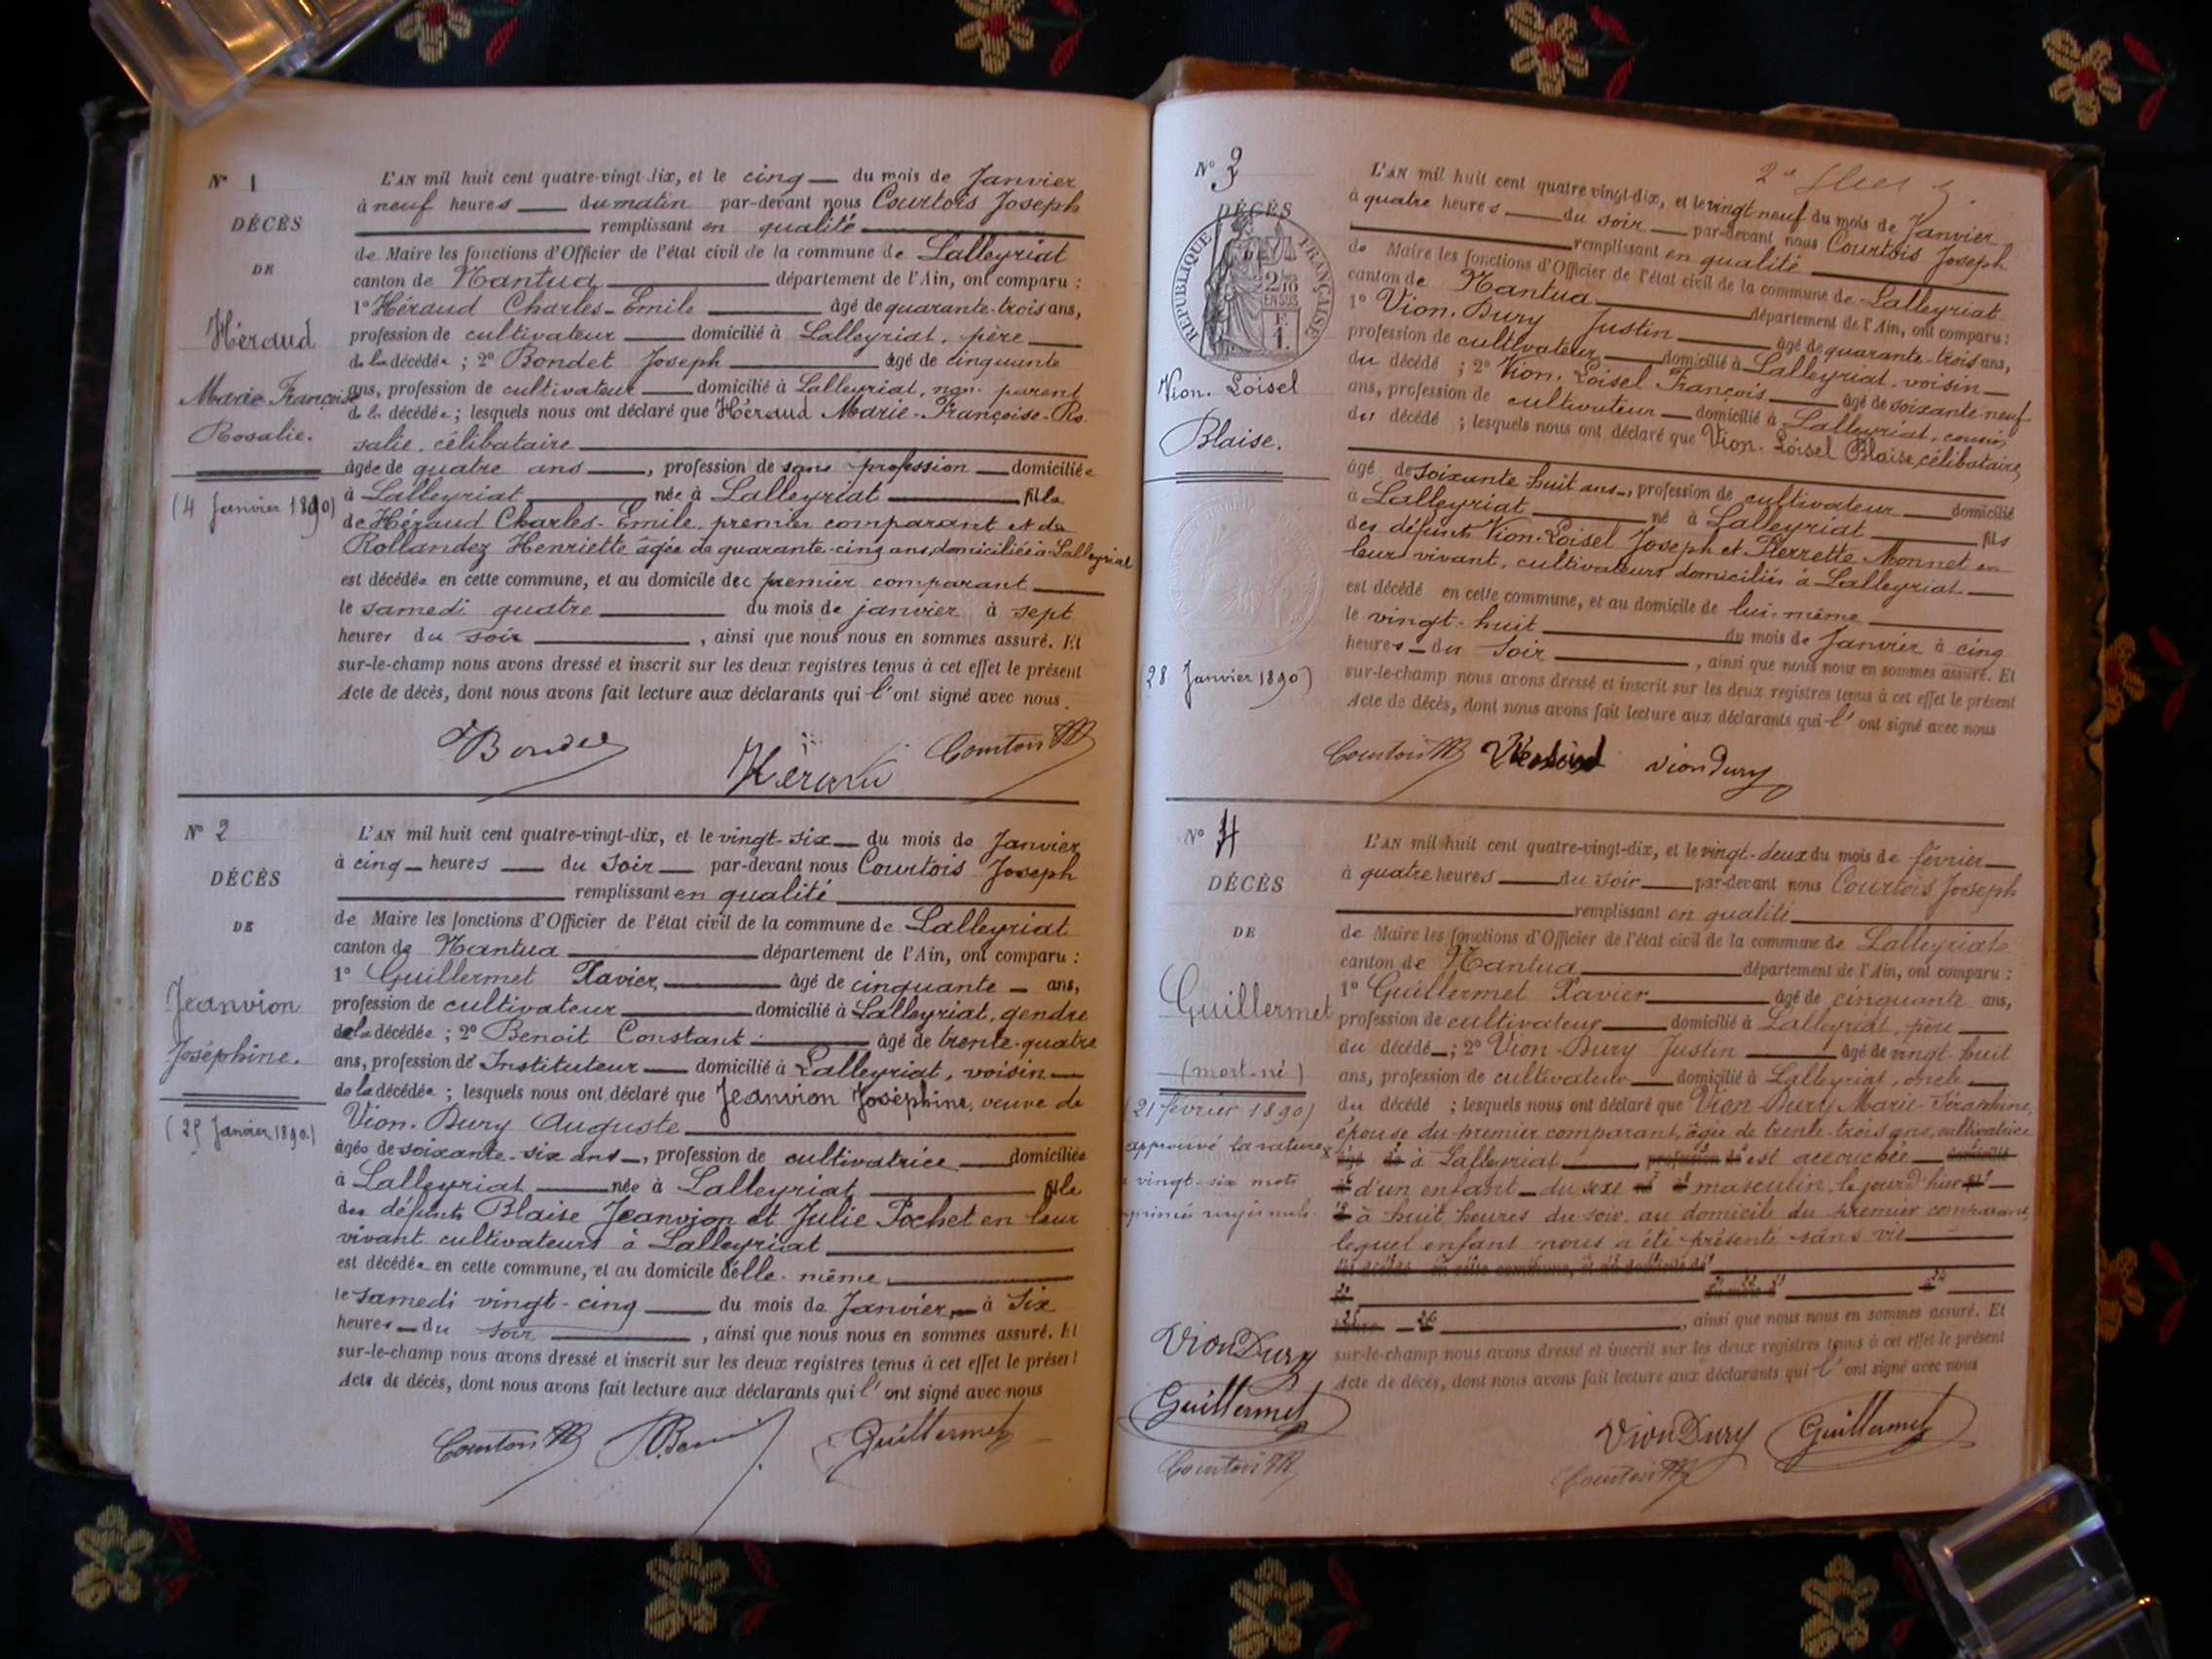 N° 1
DÉCÈS
DE
Héraud
Marie-Françoise
Rosalie.
(4 Janvier 1890)
L'AN mil huit cent quatre-vingt-dix, et le cinq du mois de Janvier
à neuf heures du matin par-devant nous Courtois Joseph
remplissant en qualité
de Maire les fonctions d'Officier de l'état civil de la commune de Lalleyriat
canton de Nantua département de l'Ain, ont comparu :
1° Héraud Charles-Emile âgé de quarante-trois ans,
profession de cultivateur domicilié à Lalleyriat, père
de la décédée ; 2° Bondet Joseph âgé de cinquante
ans, profession de cultivateur domicilié à Lalleyriat, non parent
de la décédée ; lesquels nous ont déclaré que Héraud Marie-Françoise-Ro-
salie, célibataire
âgée de quatre ans, profession de sans profession domiciliée
à Lalleyriat née à Lalleyriat fille
de Héraud Charles-Emile, premier comparant et de
Rollandez Henriette âgée de quarante-cinq ans, domiciliée à Lalleyriat
est décédée en cette commune, et au domicile du premier comparant
le samedi quatre du mois de janvier à sept
heures du soir, ainsi que nous nous en sommes assuré. Et
sur-le-champ nous avons dressé et inscrit sur les deux registres tenus à cet effet le présent
Acte de décès, dont nous avons fait lecture aux déclarants qui l'ont signé avec nous.
Héraud Courtois
N° 2
DÉCÈS
DE
Jeanvion
Joséphine.
(25 Janvier 1890.)
L'AN mil huit cent quatre-vingt-dix, et le vingt-six du mois de Janvier
à cinq heures du soir par-devant nous Courtois Joseph
remplissant en qualité
de Maire les fonctions d'Officier de l'état civil de la commune de Lalleyriat
canton de Nantua département de l'Ain, ont comparu :
1° Guillermet Xavier âgé de cinquante ans,
profession de cultivateur domicilié à Lalleyriat, gendre
de la décédée ; 2° Benoit Constant âgé de trente-quatre
ans, profession de Instituteur domicilié à Lalleyriat, voisin
de la décédée ; lesquels nous ont déclaré que Jeanvion Joséphine, veuve de
Vion-Dury Auguste
âgée de soixante-six ans, profession de cultivatrice domiciliée
à Lalleyriat née à Lalleyriat fille
des défunts Blaise Jeanvion et Julie Pochet en leur
vivant cultivateurs à Lalleyriat
est décédée en cette commune, et au domicile d'elle-même
le samedi vingt-cinq du mois de Janvier à six
heures du soir, ainsi que nous nous en sommes assuré. Et
sur-le-champ nous avons dressé et inscrit sur les deux registres tenus à cet effet le présent
Acte de décès, dont nous avons fait lecture aux déclarants qui l'ont signé avec nous
Courtois Guillermet
N° 3
DÉCÈS
RÉPUBLIQUE FRANÇAISE
2/10
EN SUS
F.
1.
Vion-Loisel
Blaise.
(28 Janvier 1890)
L'AN mil huit cent quatre-vingt-dix, et le vingt-neuf du mois de Janvier
à quatre heures du soir par-devant nous Courtois Joseph
remplissant en qualité
de Maire les fonctions d'Officier de l'état civil de la commune de Lalleyriat
canton de Nantua département de l'Ain, ont comparu :
1° Vion-Dury Justin âgé de quarante-trois ans,
profession de cultivateur domicilié à Lalleyriat, voisin
du décédé ; 2° Vion-Loisel François âgé de soixante-neuf
ans, profession de cultivateur domicilié à Lalleyriat, cousin
du décédé ; lesquels nous ont déclaré que Vion-Loisel Blaise, célibataire,
âgé de soixante-huit ans, profession de cultivateur domicilié
à Lalleyriat né à Lalleyriat fils
des défunts Vion-Loisel Joseph et Pierrette Monnet en
leur vivant, cultivateurs domiciliés à Lalleyriat
est décédé en cette commune, et au domicile de lui-même
le vingt-huit du mois de Janvier à cinq
heures du soir, ainsi que nous nous en sommes assuré. Et
sur-le-champ nous avons dressé et inscrit sur les deux registres tenus à cet effet le présent
Acte de décès, dont nous avons fait lecture aux déclarants qui l'ont signé avec nous
Courtois Vion Dury
N° 4
DÉCÈS
DE
Guillermet
(mort-né)
(21 février 1890)
approuvé la rature
vingt-six mots
Vion Dury
Guillermet
Courtois
L'AN mil huit cent quatre-vingt-dix, et le vingt-deux du mois de février
à quatre heures du soir par-devant nous Courtois Joseph
remplissant en qualité
de Maire les fonctions d'Officier de l'état civil de la commune de Lalleyriat
canton de Nantua département de l'Ain, ont comparu :
1° Guillermet Xavier âgé de cinquante ans,
profession de cultivateur domicilié à Lalleyriat, père
du décédé ; 2° Vion-Dury Justin âgé de vingt-huit
ans, profession de cultivateur domicilié à Lalleyriat, oncle
du décédé ; lesquels nous ont déclaré que Vion-Dury Marie-Séraphine,
épouse du premier comparant, âgée de trente-trois ans, cultivatrice
à Lalleyriat est accouchée
d'un enfant du sexe masculin, le jour d'hier
à huit heures du soir, au domicile du premier comparant,
lequel enfant nous a été présenté sans vie
, ainsi que nous nous en sommes assuré. Et
sur-le-champ nous avons dressé et inscrit sur les deux registres tenus à cet effet le présent
Acte de décès, dont nous avons fait lecture aux déclarants qui l'ont signé avec nous
Vion Dury Guillermet
Courtois